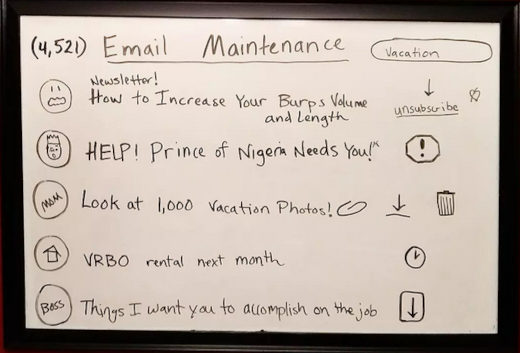 (4,521) Email Maintenance Vacation
Newsletter!
How to Increase Your Burps Volume
and Length
unsubscribe
HELP! Prince of Nigeria Needs You!"
!
MOM Look at 1,000 Vacation Photos!
VRBO rental next month
BOSS Things I want you to accomplish on the job